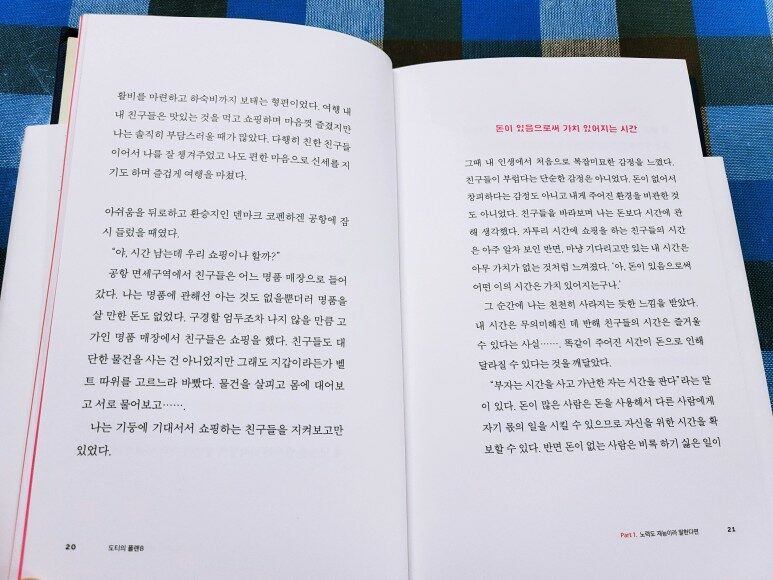 활비를 마련하고 하숙비까지 보태는 형편이었다. 여행 내
내 친구들은 맛있는 것을 먹고 쇼핑하며 마음껏 즐겼지만
나는 솔직히 부담스러울 때가 많았다. 다행히 친한 친구들
이어서 나를 잘 챙겨주었고 나도 편한 마음으로 신세를 지
기도 하며 즐겁게 여행을 마쳤다.
아쉬움을 뒤로하고 환승지인 덴마크 코펜하겐 공항에 잠
시 들렀을 때였다.
"야, 시간 남는데 우리 쇼핑이나 할까?"
공항 면세구역에서 친구들은 어느 명품 매장으로 들어
갔다. 나는 명품에 관해선 아는 것도 없을뿐더러 명품을
살 만한 돈도 없었다. 구경할 엄두조차 나지 않을 만큼 고
가인 명품 매장에서 친구들은 쇼핑을 했다. 친구들도 대
단한 물건을 사는 건 아니었지만 그래도 지갑이라든가 벨
트 따위를 고르느라 바빴다. 물건을 살피고 몸에 대어보
고 서로 물어보고…….
나는 기둥에 기대서서 쇼핑하는 친구들을 지켜보고만
있었다.
20 도티의 플랜B
돈이 있음으로써 가치 있어지는 시간
그때 내 인생에서 처음으로 복잡미묘한 감정을 느꼈다.
친구들이 부럽다는 단순한 감정은 아니었다. 돈이 없어서
창피하다는 감정도 아니고 내게 주어진 환경을 비관한 것
도 아니었다. 친구들을 바라보며 나는 돈보다 시간에 관
해 생각했다. 자투리 시간에 쇼핑을 하는 친구들의 시간
은 아주 알차 보인 반면, 마냥 기다리고만 있는 내 시간은
아무 가치가 없는 것처럼 느껴졌다. '아, 돈이 있음으로써
어떤 이의 시간은 가치 있어지는구나.'
그 순간에 나는 천천히 사라지는 듯한 느낌을 받았다.
내 시간은 무의미해진 데 반해 친구들의 시간은 즐거울
수 있다는 사실……. 똑같이 주어진 시간이 돈으로 인해
달라질 수 있다는 것을 깨달았다.
"부자는 시간을 사고 가난한 자는 시간을 판다"라는 말
이 있다. 돈이 많은 사람은 돈을 사용해서 다른 사람에게
자기 몫의 일을 시킬 수 있으므로 자신을 위한 시간을 확
보할 수 있다. 반면 돈이 없는 사람은 비록 하기 싫은 일이
Part 1. 노력도 재능이라 말한다면 21